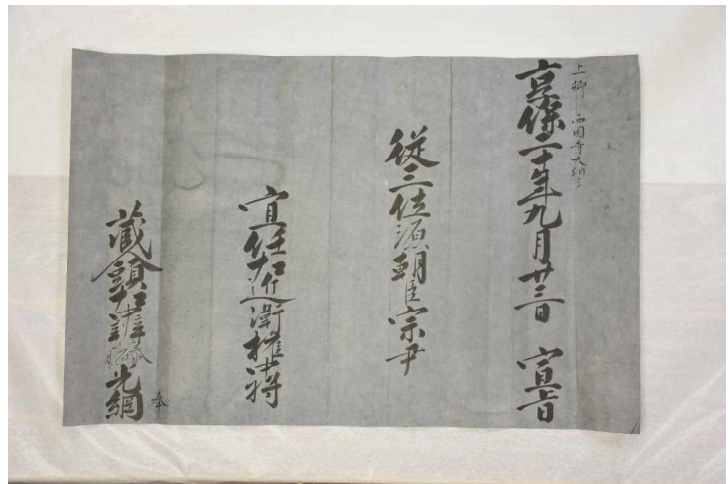 上卿 西園寺大納言
享保二十年九月廿三日 宣旨
從三位源朝臣宗尹
宜任右近衛權中將
蔵人頭右中辨藤原光綱 奉